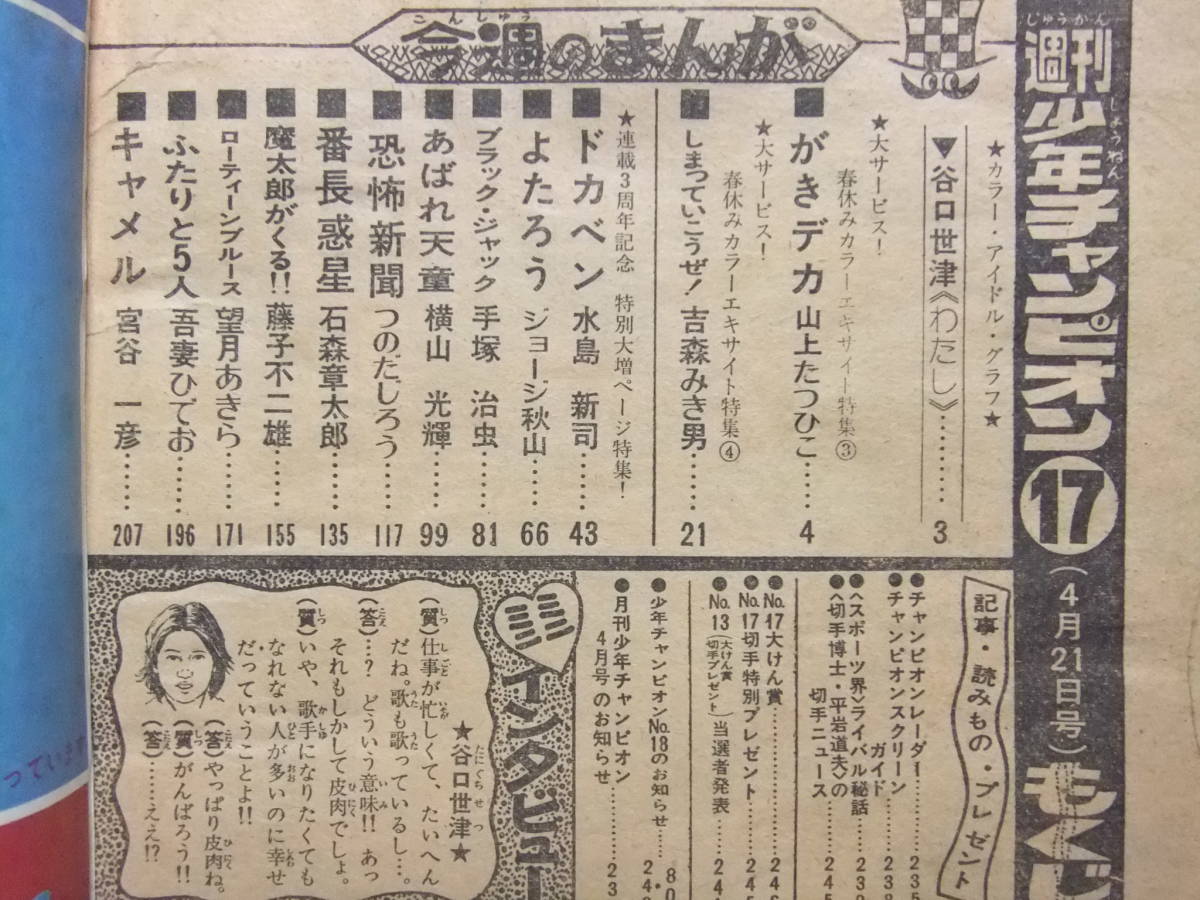 じゅうかん しょうねん
週刊少年チャンピオン 17 (4月21日号) もくじ
★カラー・アイドル・グラフ★
▼谷口世津《わたし》………3
こんしゅう
今週のまんが
★大サービス!
春休みカラーエキサイト特集③
■がきデカ 山上たつひこ……4
★大サービス!
春休みカラーエキサイト特集④
■しまっていこうぜ! 吉森みき男……21
★連載3周年記念 特別大増ページ特集!
■ドカベン 水島 新司……43
■よたろう ジョージ秋山……66
■ブラック・ジャック 手塚 治虫……81
■あばれ天童 横山 光輝……99
■恐怖新聞 つのだじろう……117
■番長惑星 石森章太郎……135
■魔太郎がくる!! 藤子不二雄……155
■ローティーンブルース 望月あきら……171
■ふたりと5人 吾妻ひでお……196
■キャメル 宮谷 一彦……207
記事・読みもの・プレゼント
●チャンピオンレーダー………235
●チャンピオンスクリーン
ガイド………238
●〈スポーツ界〉ライバル秘話………239
●〈切手博士・平岩道夫〉の
切手ニュース………245
●No.17大けん賞………246
●No.17切手特別プレゼント………245
●No.13(大けん賞 切手プレゼント)当選者発表……24
●少年チャンピオンNo.18のお知らせ……80・24
●月刊少年チャンピオン
4月号のお知らせ………23
インタビュー
★谷口世津★
たにぐちせつ
(質)仕事が忙しくて、たいへん
だね。歌も歌っているし…。
(答)…? どういう意味!! あっ
それもしかして皮肉でしょ。
(質)いや、歌手になりたくても
なれない人が多いのに幸せ
だっていうことよ!!
(答)やっぱり皮肉ね。
(質)がんばろう!!
(答)……ええ!?
っています